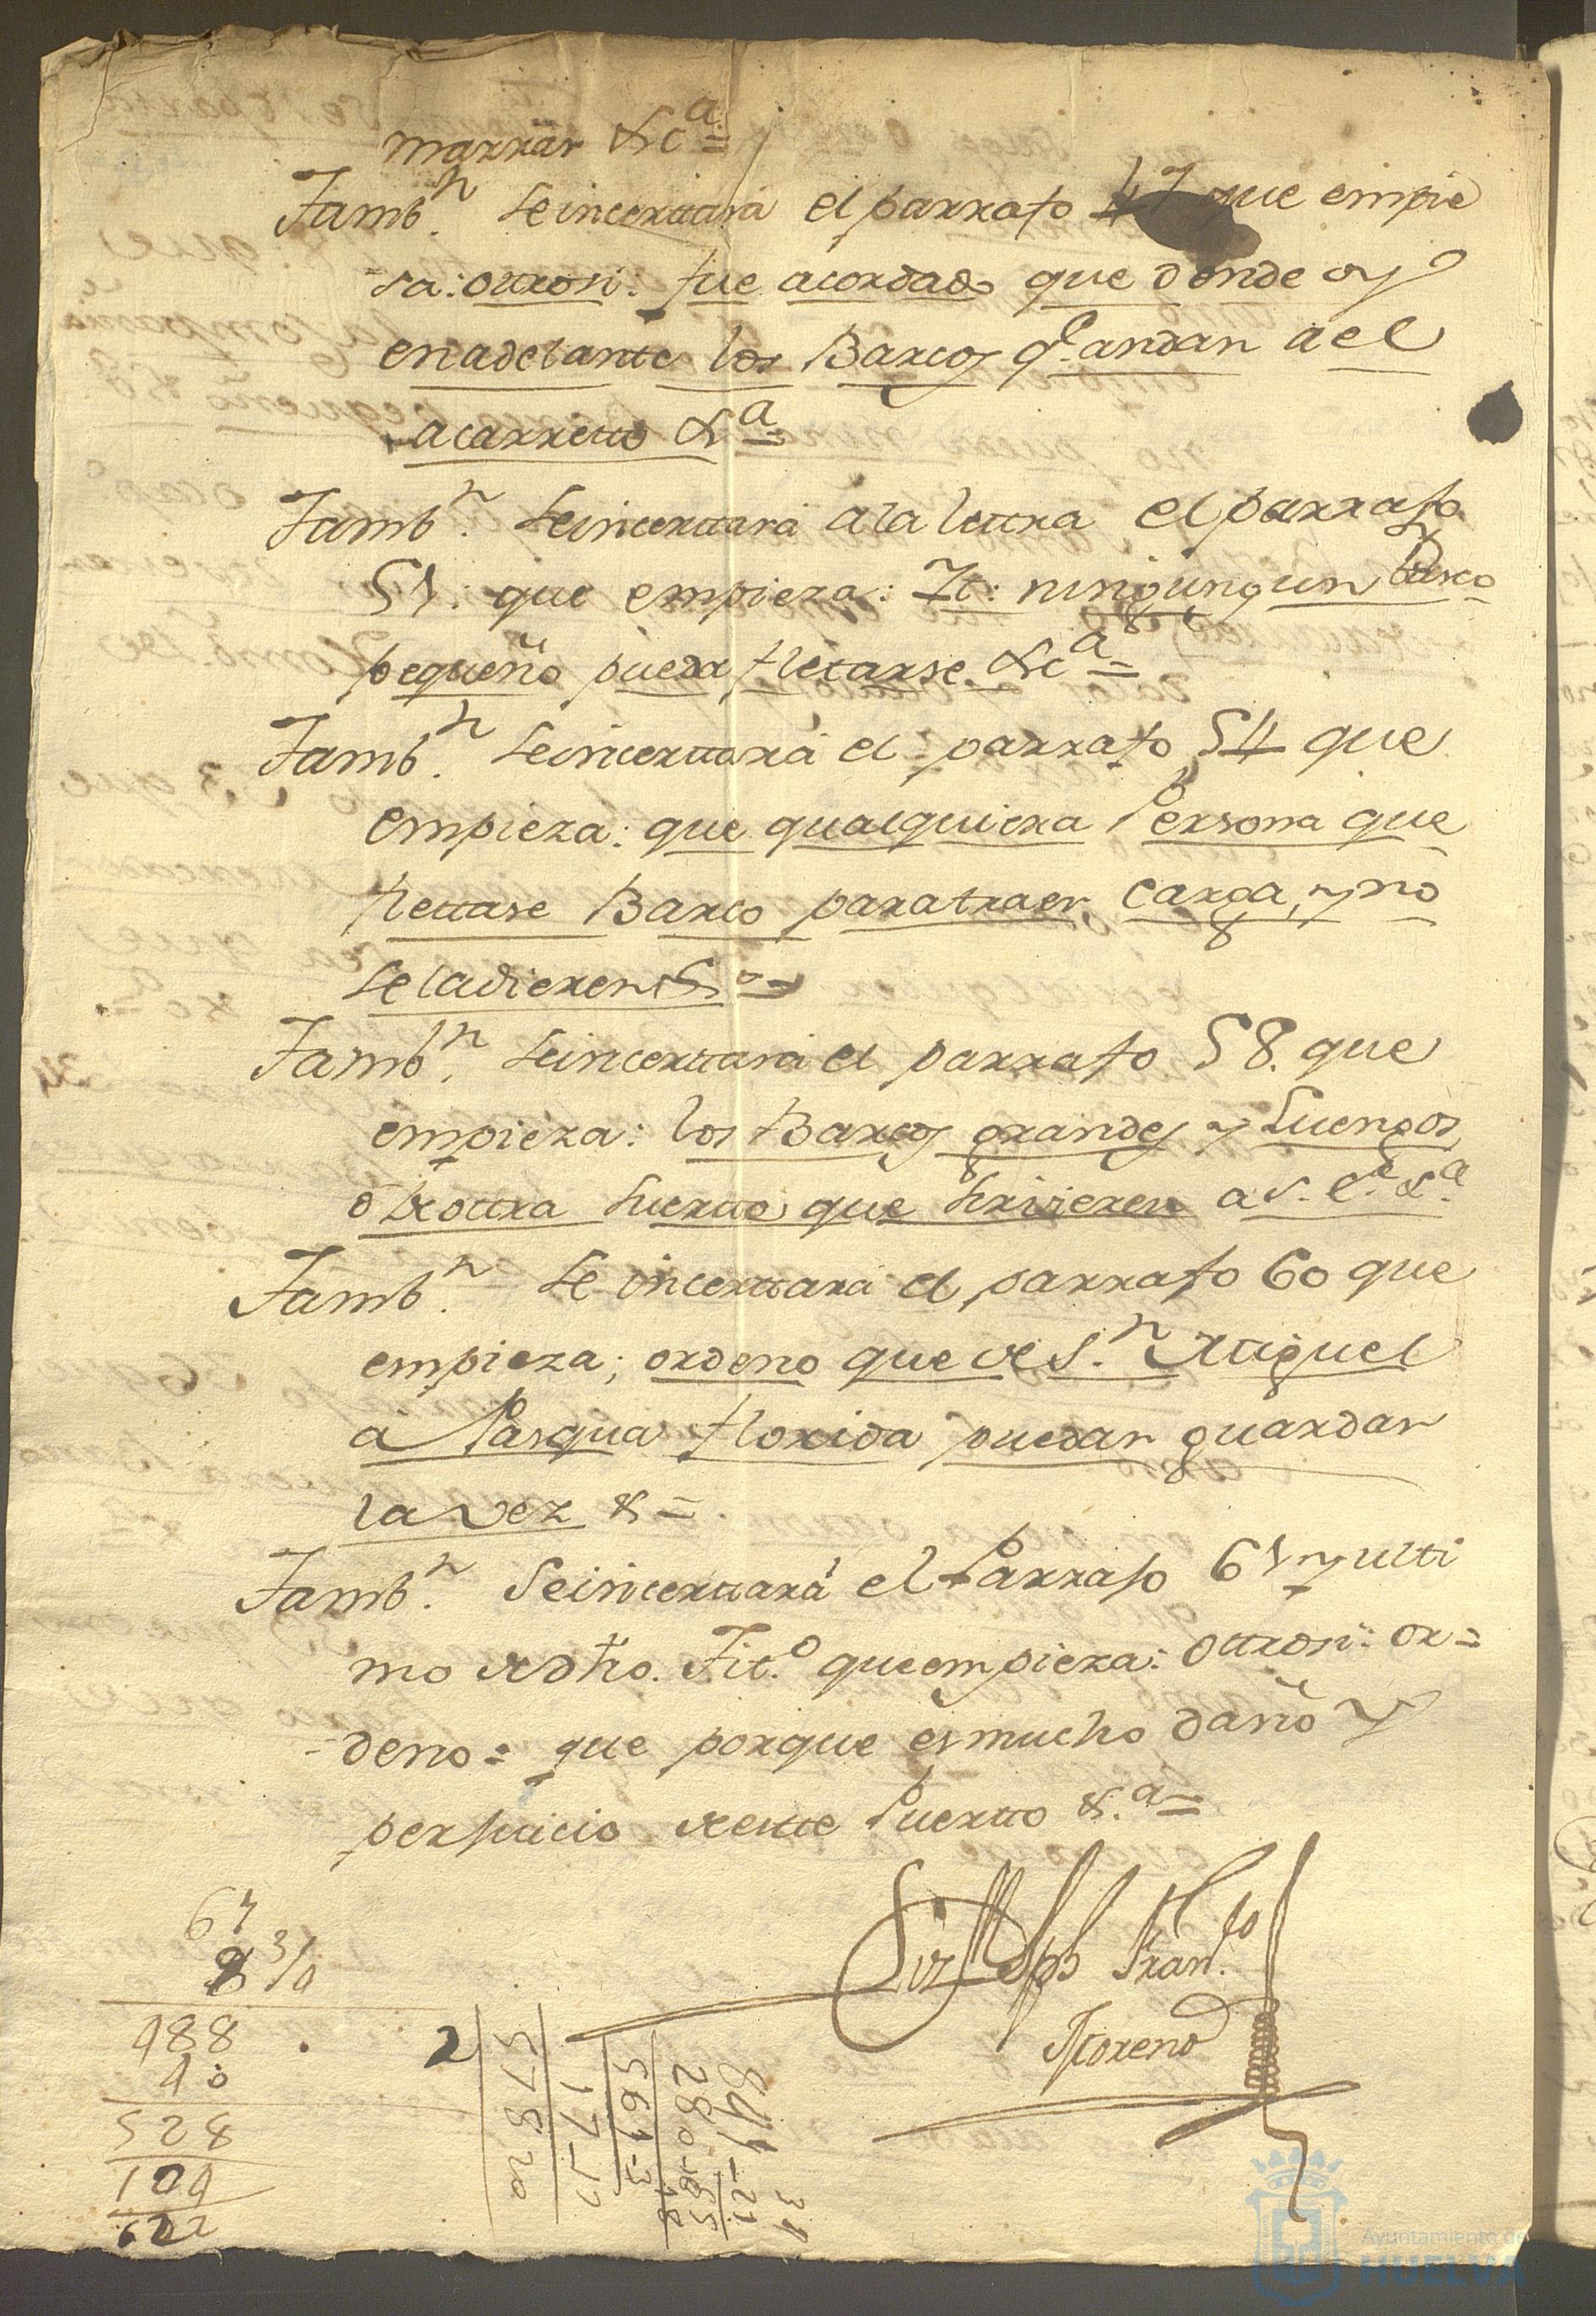 marrar &c.ª =
Tamb.n se incerttará el parrafo 47 que empie
sa: ottrosi: fue acordado que donde oy
en adelante los Barcos q.e andan a el
acarretto &.ª
Tamb.n se incerttará a la lettra el parrafo
51. que empieza: It: ningungun Barco
pequeño pueda fletarse &c.ª =
Tamb.n se incerttará el parrafo 54 que
empieza: que qualquiera Persona que
flettase Barco para traer carga, y no
se la dieren &.ª =
Tamb.n se incerttará el parrafo 58. que
empieza: los Barcos grandes y Luengos
o de ottra suertte que sirvieren a S. E.ª &.ª
Tamb.n se incerttará el parrafo 60 que
empieza; ordeno que de S.n Miguel
a Pasqua florida puedan guardar
la vez & =
Tamb.n se incerttará el Parrafo 61 y ulti
mo de dho. Tit.o que empieza: Ottrosi: or=
deno = que porque es mucho daño y
perjuicio de estte Puertto &.ª =
Liz.do Jph Fran.co
Moreno
61
8 3/0
488
40
528
104
622
2
57820
17-17
561-3
280-18
841-21
31
Ayuntamiento de
HUELVA